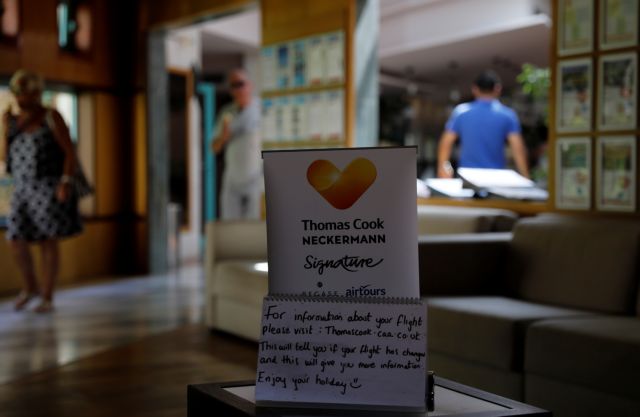 Thomas Cook
NECKERMANN
Signature
PEGASE airtours
For information about your flight
please visit : Thomascook.caa.co.uk
This will tell you if your flight has changed
and this will give you more information
Enjoy your holiday